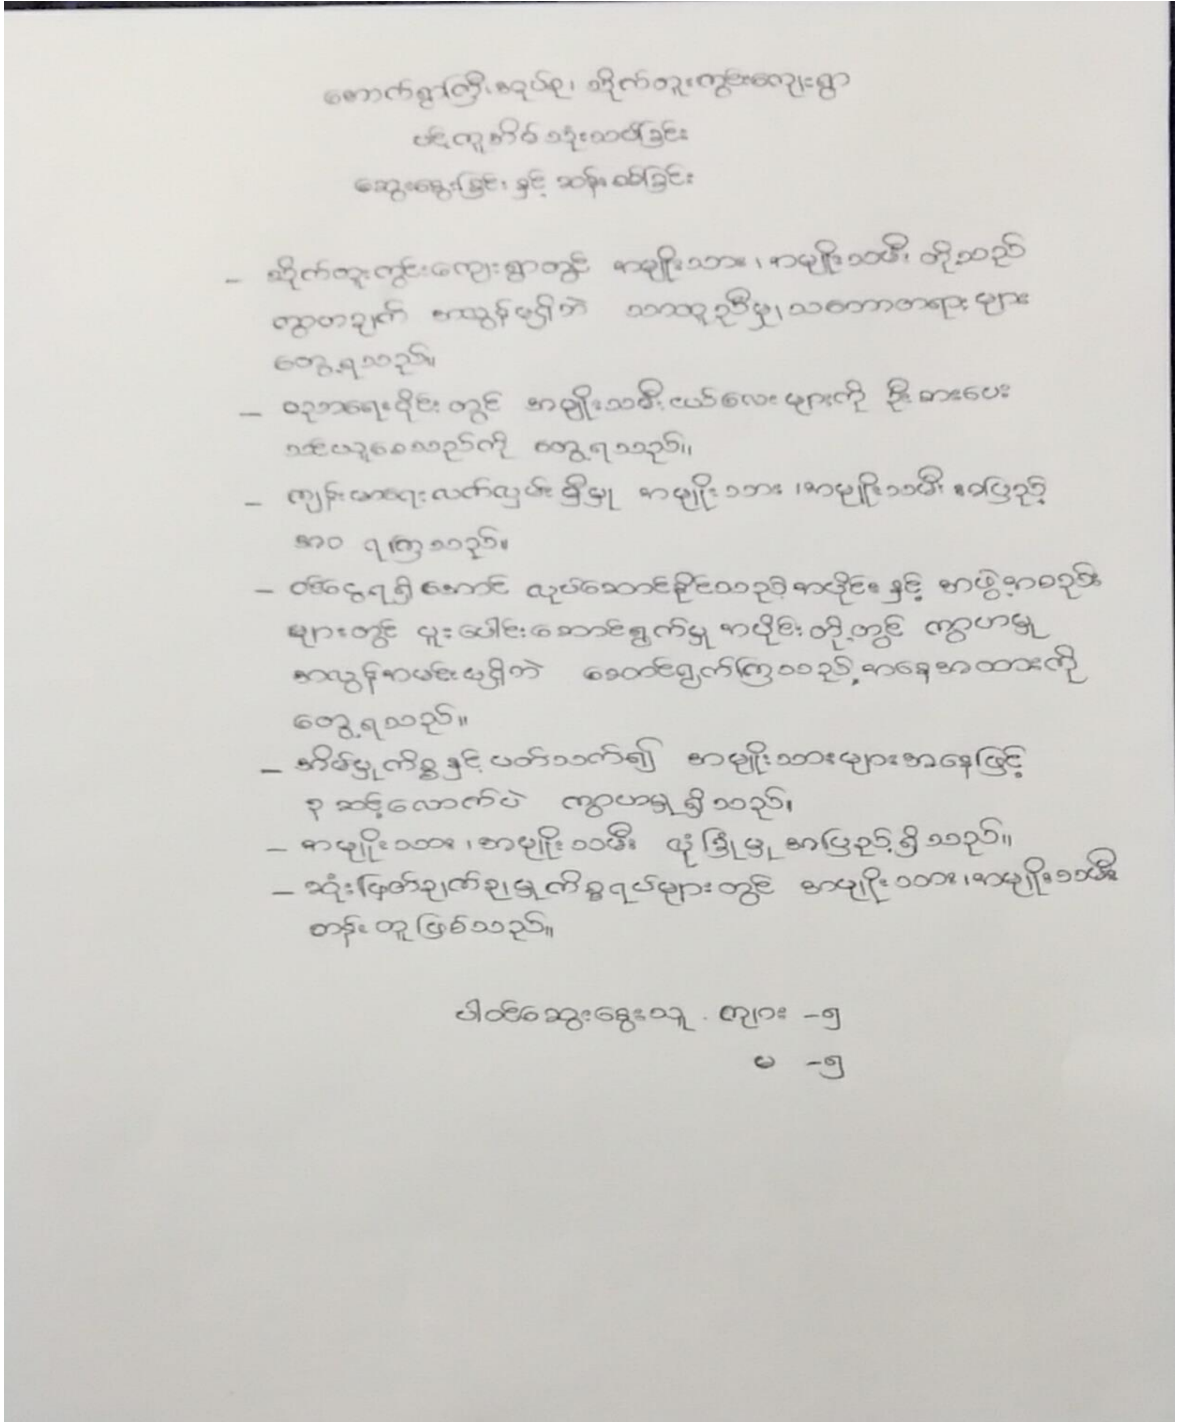 အောက်ရွာကြီးအုပ်စု၊ ဆိုက်တူးကွင်းကျေးရွာ
ပင့်ကူအိမ် သုံးသပ်ခြင်း
ဆွေးနွေးခြင်း နှင့် ဆန်းစစ်ခြင်း
– ဆိုက်တူးကွင်းကျေးရွာတွင် အမျိုးသား၊ အမျိုးသမီး တို့သည်
ကွာတချက် အလွန်မရှိဘဲ သာတူညီမျှ သဘောတရားများ
တွေ့ရသည်။
– ပညာရေးပိုင်းတွင် အမျိုးသမီးငယ်လေးများကို ဦးစားပေး
သင်ယူစေသည်ကို တွေ့ရသည်။
– ကျန်းမာရေးလက်လှမ်းမှီမှု အမျိုးသား၊ အမျိုးသမီး အပြည့်
အဝ ရကြသည်။
– ဝင်ငွေရရှိအောင် လုပ်ဆောင်နိုင်သည့်အပိုင်း နှင့် အဖွဲ့အစည်း
များတွင် ပူးပေါင်းဆောင်ရွက်မှု အပိုင်းတို့တွင် ကွာဟမှု
အလွန်အမင်းမရှိဘဲ ဆောင်ရွက်ကြသည့်အနေအထားကို
တွေ့ရသည်။
– အိမ်မှုကိစ္စနှင့်ပတ်သက်၍ အမျိုးသားများအနေဖြင့်
၃ ဆင့်လောက်ပဲ ကွာဟမှုရှိသည်။
– အမျိုးသား၊ အမျိုးသမီး လုံခြုံမှု အပြည့်ရှိသည်။
– ဆုံးဖြတ်ချက်ချမှုကိစ္စရပ်များတွင် အမျိုးသား၊ အမျိုးသမီး
တန်းတူဖြစ်သည်။
ပါဝင်ဆွေးနွေးသူ . ကျား –၅
မ –၅